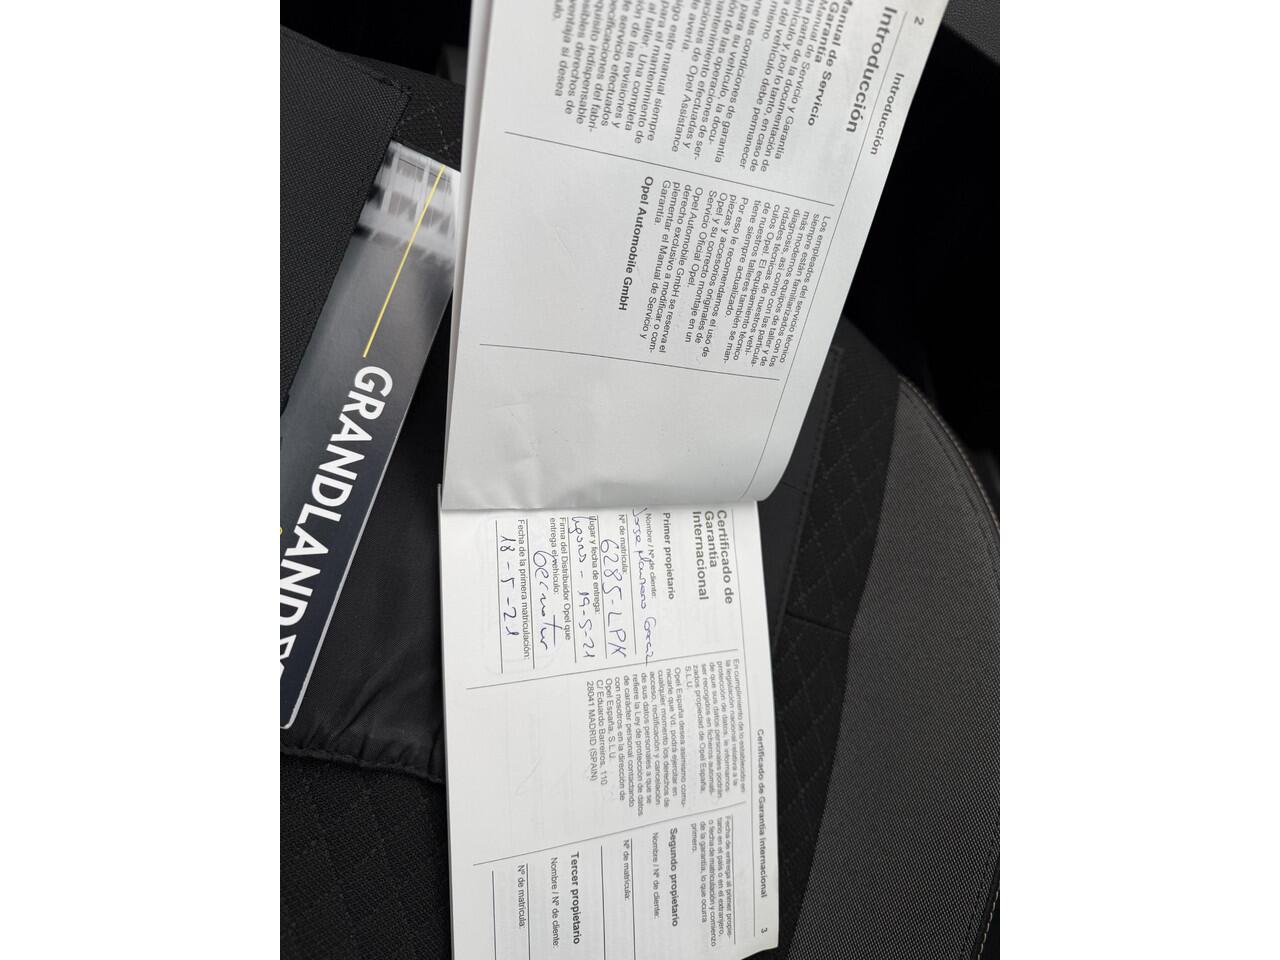 2
Introducción
Introducción
Manual de Servicio
Garantía
Manual de Servicio y Garantía
ma parte de la documentación de
vehículo y, por lo tanto, en caso de
del vehículo debe permanecer
mismo.
las condiciones de garantía
para su vehículo, la docu-
ón de las operaciones de ser-
mantenimiento efectuadas y
aciones de Opel Assistance
de avería.
igo este manual siempre
para el mantenimiento de
al taller. Una completa
ión de las revisiones y
de servicio efectuados
pecificaciones del fabri-
quisito indispensable
sibles derechos de
ventaja si desea
Los empleados del servicio técnico
siempre están familiarizados con los
más modernos equipos de taller y de
diagnosis, así como con las particula-
ridades técnicas de nuestros vehí-
culos Opel. El equipamiento técnico
de nuestros talleres también se man-
tiene siempre actualizado.
Por eso le recomendamos el uso de
piezas y accesorios originales de
Opel y su correcto montaje en un
Servicio Oficial Opel.
Opel Automobile GmbH se reserva el
derecho exclusivo a modificar o com-
plementar el Manual de Servicio y
Garantía.
Opel Automobile GmbH
GRANDLAND
Certificado de Garantía Internacional
3
Certificado de
Garantía
Internacional
Primer propietario
Nombre / Nº de cliente:
Nº de matrícula:
6285-LPK
lugar y fecha de entrega:
- 19-5-21
Firma del Distribuidor Opel que
entrega el vehículo:
Fecha de la primera matriculación:
18-5-21
En cumplimiento de lo establecido en
la legislación nacional relativa a la
protección de datos, le informamos
de que sus datos personales podrán
ser recogidos en ficheros automati-
zados propiedad de Opel España,
S.L.U.
Opel España desea asimismo comu-
nicarle que Vd. podrá ejercitar en
cualquier momento los derechos de
acceso, rectificación y cancelación
de sus datos personales a que se
refiere la Ley de protección de datos
de carácter personal contactando
con nosotros en la dirección de
Opel España, S.L.U.
C/ Eduardo Barreiros, 110
28041 MADRID (SPAIN)
Fecha de entrega al primer propie-
tario en el país o en el extranjero,
o fecha de matriculación y comienzo
de la garantía, lo que ocurra
primero.
Segundo propietario
Nombre / Nº de cliente:
Nº de matrícula:
Tercer propietario
Nombre / Nº de cliente:
Nº de matrícula: